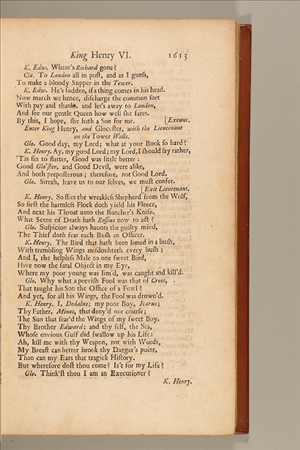 King Henry VI. 1613
K. Edw. Where's Richard gone?
Cla. To London all in post, and as I guess,
To make a bloody Supper in the Tower.
K. Edw. He's sudden, if a thing comes in his head.
Now march we hence, discharge the common sort
With pay and thanks, and let's away to London,
And see our gentle Queen how well she fares.
By this, I hope, she hath a Son for me. [Exeunt.
Enter King Henry, and Glocester, with the Lieutenant
on the Tower Walls.
Glo. Good day, my Lord; what at your Book so hard?
K. Henry. Ay, my good Lord; my Lord, I should say rather,
'Tis sin to flatter, Good was little better:
Good Glo'ster, and Good Devil, were alike,
And both preposterous; therefore, not Good Lord.
Glo. Sirrah, leave us to our selves, we must confer.
[Exit Lieutenant.
K. Henry. So flies the wreakless Shepherd from the Wolf,
So first the harmless Flock doth yield his Fleece,
And next his Throat unto the Butcher's Knife.
What Scene of Death hath Rossius now to act?
Glo. Suspicion always haunts the guilty mind,
The Thief doth fear each Bush an Officer.
K. Henry. The Bird that hath been limed in a bush,
With trembling Wings misdoubteth every bush;
And I, the helpless Male to one sweet Bird,
Have now the fatal Object in my Eye,
Where my poor young was lim'd, was caught and kill'd.
Glo. Why what a peevish Fool was that of Creet,
That taught his Son the Office of a Fowl?
And yet, for all his Wings, the Fool was drown'd.
K. Henry. I, Dedalus; my poor Boy, Icarus;
Thy Father, Minos, that deny'd our course;
The Sun that fear'd the Wings of my sweet Boy,
Thy Brother Edward; and thy self, the Sea,
Whose envious Gulf did swallow up his Life:
Ah, kill me with thy Weapon, not with Words,
My Breast can better brook thy Dagger's point,
Than can my Ears that tragick History.
But wherefore dost thou come? Is't for my Life?
Glo. Think'st thou I am an Executioner?
K. Henry.